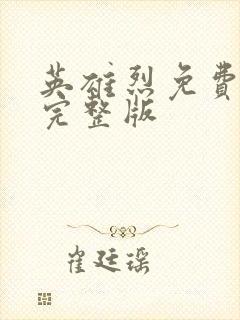 英雄烈免費
完整版
崔廷瑶